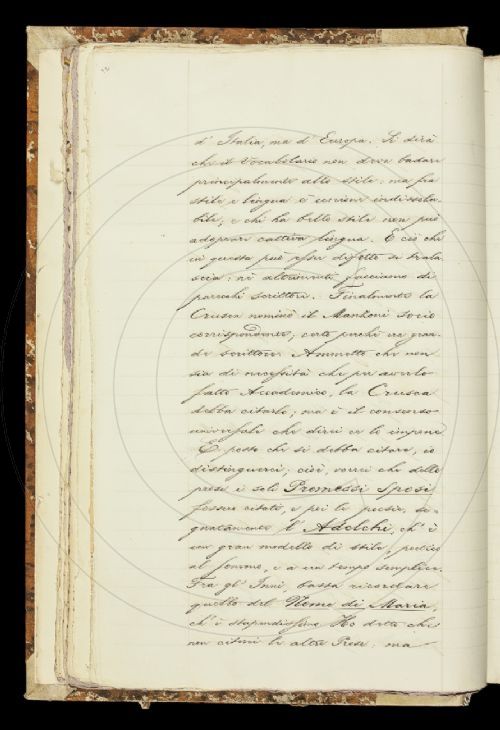 d' Italia, ma d' Europa. Si dirà
che il Vocabolario non deve badare
principalmente allo stile; ma fra
stile e lingua è unione indissolu-
bile; e chi ha bello stile non può
adoprare cattiva lingua. E ciò che
in questa può esser difetto si trala
scia; nè altrimenti facciamo di
parecchi scrittori. Finalmente la
Crusca nominò il Manzoni socio
corrispondente; certo perchè era gran-
de scrittore. Ammetto che non
sia di necessità che per averlo
fatto Accademico, la Crusca
debba citarlo; ma è il consenso
universale che direi ce lo impone
E posto che si debba citare, io
distinguerei; cioè, vorrei che delle
prose i soli Promessi Sposi
fossero citati, e per le poesie, se-
gnatamente l' Adelchi, ch' è
un gran modello di stile, poetico
al sommo, e a un tempo semplice.
Fra gl' Inni, basta ricordare
quello del Nome di Maria,
ch' è stupendissimo. Ho detto che
non citerei le altre Prose; ma